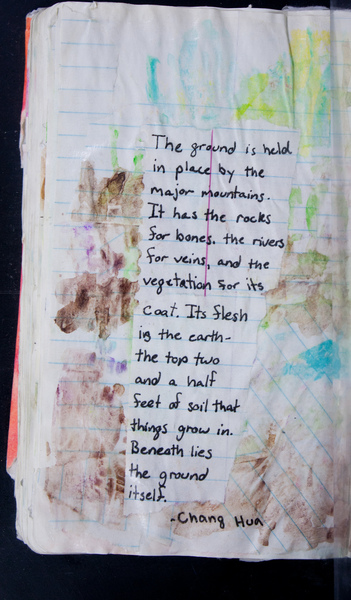 The ground is held
in place by the
major mountains.
It has the rocks
for bones, the rivers
for veins, and the
vegetation for its
coat. Its flesh
is the earth-
the top two
and a half
feet of soil that
things grow in.
Beneath lies
the ground
itself.
-Chang Hua